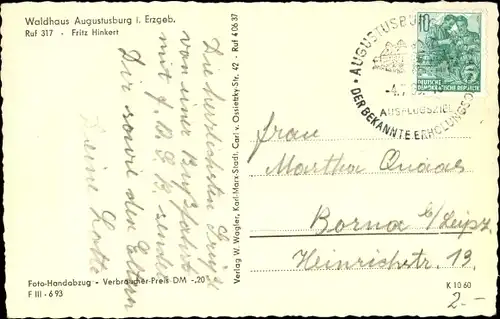 Waldhaus Augustusburg i. Erzgeb.
Ruf 317 - Fritz Hinkert
Die herzlichsten
von einer
mit sendet
Dir sowie den Eltern
Deine Lotte
Foto-Handabzug - Verbraucher-Preis DM -,20
F III - 6 93
Verlag W. Wagler, Karl-Marx-Stadt, Carl v. Ossietzky-Str. 42 - Ruf 4 06 37
AUGUSTUSBU
-4.7.
AUSFLUGSZIEL
DER BEKANNTE ERHOLUNGSO
10
DEUTSCHE
DEMOKRATISCHE REPUBLIK
Frau
Martha Quaas
Borna b/Leipz.
Heinrichstr. 13.
K 10 60
2.-